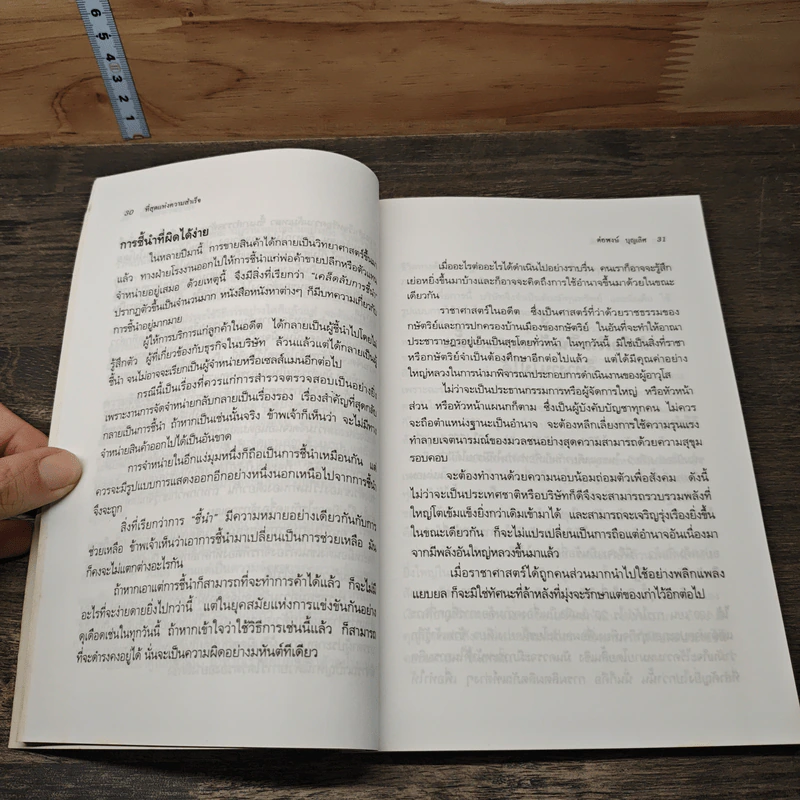 6 5 4 3 2 1
30 ที่สุดแห่งความสำเร็จ
การชี้นำที่ผิดได้ง่าย
ในหลายปีมานี้ การขายสินค้าได้กลายเป็นวิทยาศาสตร์ขึ้นมา
แล้ว ทางฝ่ายโรงงานออกไปให้การชี้นำแก่พ่อค้าขายปลีกหรือตัวแทน
จำหน่ายอยู่เสมอ ด้วยเหตุนี้ จึงมีสิ่งที่เรียกว่า “เคล็ดลับการชี้นำ”
ปรากฏตัวขึ้นเป็นจำนวนมาก หนังสือหนังหาต่างๆ ก็มีบทความเกี่ยวกับ
การชี้นำอยู่มากมาย
ผู้ให้การบริการแก่ลูกค้าในอดีต ได้กลายเป็นผู้ชี้นำไปโดยไม่
รู้สึกตัว ผู้ที่เกี่ยวข้องกับธุรกิจในบริษัท ล้วนแล้วแต่ได้กลายเป็นผู้
ชี้นำ จนไม่อาจจะเรียกเป็นผู้จำหน่ายหรือเซลส์แมนอีกต่อไป
กรณีนี้เป็นเรื่องที่ควรแก่การสำรวจตรวจสอบเป็นอย่างยิ่ง
เพราะงานการจัดจำหน่ายกลับกลายเป็นเรื่องรอง เรื่องสำคัญที่สุดกลับ
กลายเป็นการชี้นำ ถ้าหากเป็นเช่นนั้นจริง ข้าพเจ้าก็เห็นว่า จะไม่มีทาง
จำหน่ายสินค้าออกไปได้เป็นอันขาด
การจำหน่ายในอีกแง่มุมหนึ่งก็ถือเป็นการชี้นำเหมือนกัน แต่
ควรจะมีรูปแบบการแสดงออกอีกอย่างหนึ่งนอกเหนือไปจากการชี้นำ
จึงจะถูก
สิ่งที่เรียกว่าการ “ชี้นำ” มีความหมายอย่างเดียวกันกับการ
ช่วยเหลือ ข้าพเจ้าเห็นว่าเอาการชี้นำมาเปลี่ยนเป็นการช่วยเหลือ มัน
ก็คงจะไม่แตกต่างอะไรกัน
ถ้าหากเอาแต่การชี้นำก็สามารถที่จะทำการค้าได้แล้ว ก็จะไม่มี
อะไรที่จะง่ายดายยิ่งไปกว่านี้ แต่ในยุคสมัยแห่งการแข่งขันกันอย่าง
ดุเดือดเช่นในทุกวันนี้ ถ้าหากเข้าใจว่าใช้วิธีการเช่นนี้แล้ว ก็สามารถ
ที่จะดำรงคงอยู่ได้ นั่นจะเป็นความผิดอย่างมหันต์ทีเดียว
ศักพงษ์ บุญเลิศ 31
เมื่ออะไรต่ออะไรได้ดำเนินไปอย่างราบรื่น คนเราก็อาจจะรู้สึก
เย่อหยิ่งขึ้นมาบ้างและก็อาจจะคิดถึงการใช้อำนาจขึ้นมาด้วยในขณะ
เดียวกัน
ราชาศาสตร์ในอดีต ซึ่งเป็นศาสตร์ที่ว่าด้วยราชธรรมของ
กษัตริย์และการปกครองบ้านเมืองของกษัตริย์ ในอันที่จะทำให้อาณา
ประชาราษฎรอยู่เย็นเป็นสุขโดยทั่วหน้า ในทุกวันนี้ มิใช่เป็นสิ่งที่ราชา
หรือกษัตริย์จำเป็นต้องศึกษาอีกต่อไปแล้ว แต่ได้มีคุณค่าอย่าง
ใหญ่หลวงในการนำมาพิจารณาประกอบการดำเนินงานของผู้อาวุโส
ไม่ว่าจะเป็นประธานกรรมการหรือผู้จัดการใหญ่ หรือหัวหน้า
ส่วน หรือหัวหน้าแผนกก็ตาม ซึ่งเป็นผู้บังคับบัญชาทุกคน ไม่ควร
จะถือตำแหน่งฐานะเป็นอำนาจ จะต้องหลีกเลี่ยงการใช้ความรุนแรง
ทำลายเจตนารมณ์ของมวลชนอย่างสุดความสามารถด้วยความสุขุม
รอบคอบ
จะต้องทำงานด้วยความนอบน้อมถ่อมตัวเพื่อสังคม ดังนี้
ไม่ว่าจะเป็นประเทศชาติหรือบริษัทก็ดีจึงจะสามารถรวบรวมพลังที่
ใหญ่โตเข้มแข็งยิ่งกว่าเดิมเข้ามาได้ และสามารถจะเจริญรุ่งเรืองยิ่งขึ้น
ในขณะเดียวกัน ก็จะไม่แปรเปลี่ยนเป็นการถือแต่อำนาจอันเนื่องมา
จากมีพลังอันใหญ่หลวงขึ้นมาแล้ว
เมื่อราชาศาสตร์ได้ถูกคนส่วนมากนำไปใช้อย่างพลิกแพลง
แยบยล ก็จะมีใช่ทัศนะที่ล้าหลังที่มุ่งจะรักษาแต่ของเก่าไว้อีกต่อไป